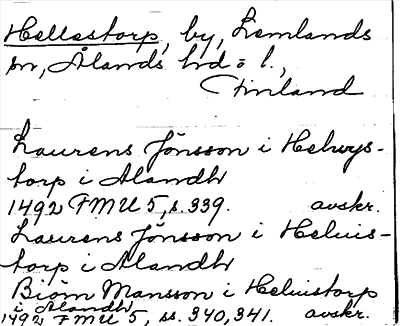 Hellestorp, by, Lemlands
sn, Ålands hd o l.,
Finland
Laurens Jönsson i Helwys-
torp i Alandh
1492 FMU 5, s. 339. avskr.
Laurens Jönsson i Heluis-
torp i Alandh
Biörn Mansson i Heluistorp
i Alandh
1492 FMU 5, ss. 340, 341. avskr.